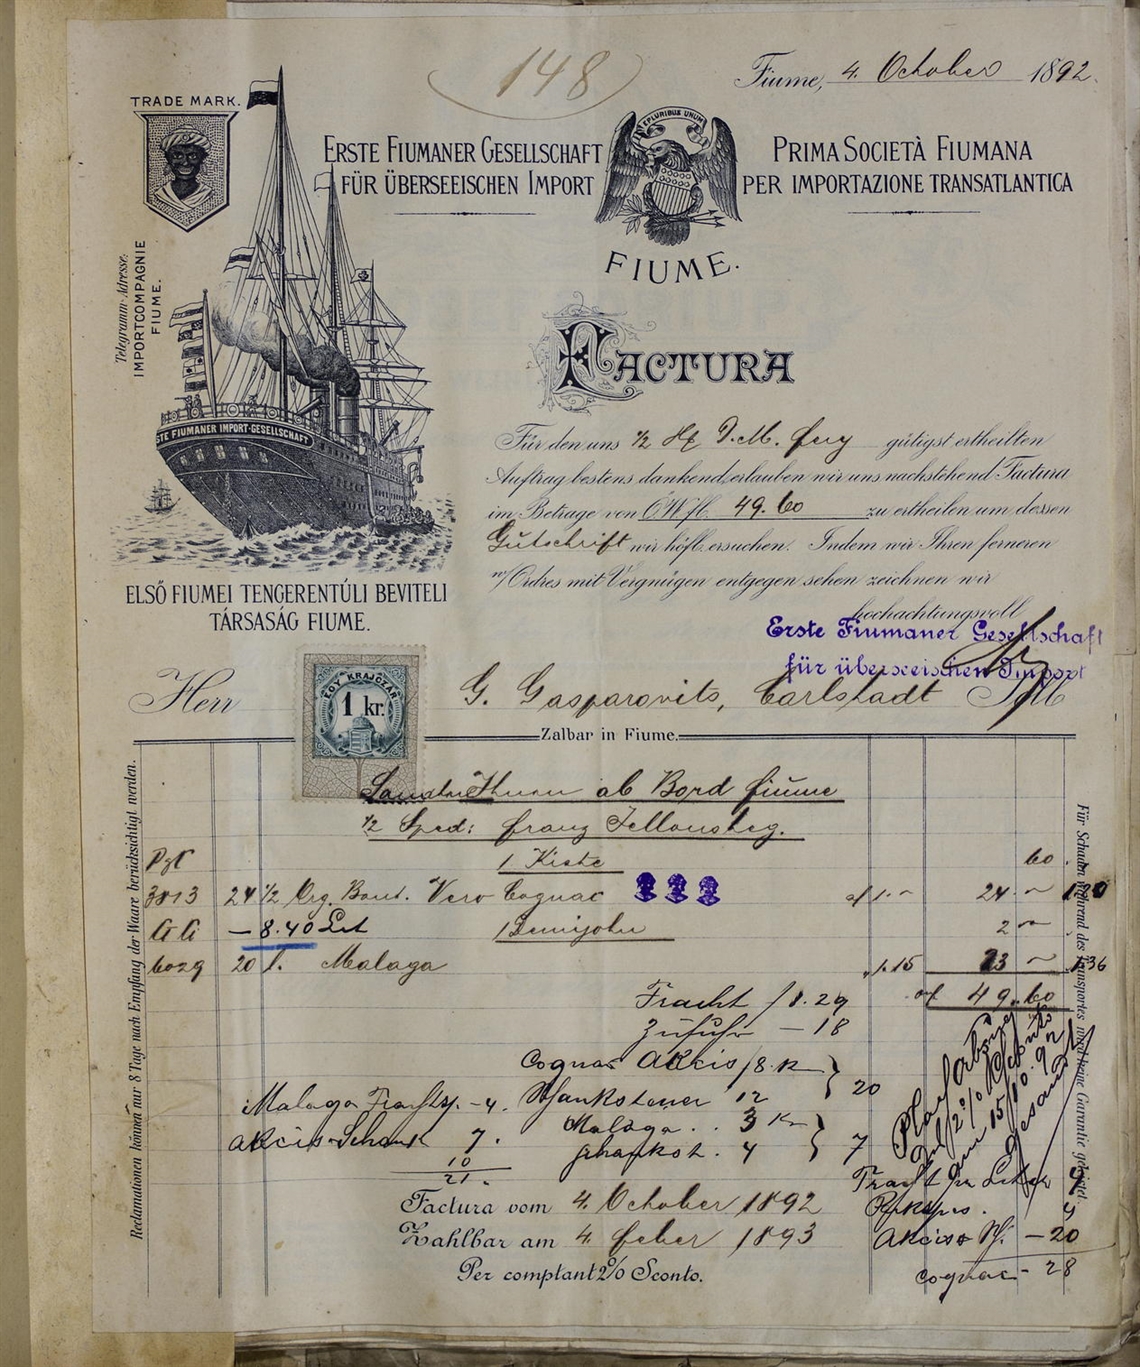 148
Fiume, 4. October 1892.
TRADE MARK.
E PLURIBUS UNUM
ERSTE FIUMANER GESELLSCHAFT
FÜR ÜBERSEEISCHEN IMPORT
PRIMA SOCIETÀ FIUMANA
PER IMPORTAZIONE TRANSATLANTICA
FIUME.
Telegramm-Adresse:
IMPORTCOMPAGNIE
FIUME.
FACTURA
STE FIUMANER IMPORT-GESELLSCHAFT
Für den uns gütigst ertheilten
Auftrag bestens dankend, erlauben wir uns nachstehend Factura
im Betrage von ÖWfl. 49.60 zu ertheilen um dessen
Gutschrift wir höfl. ersuchen. Indem wir Ihren ferneren
w/Ordres mit Vergnügen entgegen sehen zeichnen wir
hochachtungsvoll
Erste Fiumaner Gesellschaft
für überseeischen Import
ELSŐ FIUMEI TENGERENTÚLI BEVITELI
TÁRSASÁG FIUME.
EGY KRAJCZÁR
1 kr.
Herr G. Gasparovits, Carlstadt
Zalbar in Fiume.
ab Bord Fiume
½ Sped: Franz
1 Kiste 60
3813 24 ½ Org. Bout. Vero Cognac fl 1.~ 24 ~
— 8.40 1 Demijohn 2 ~
6029 20 l. Malaga 1.15 23 ~
fl 49.60
Fracht 1.29
Zufuhr — 18
Cognac Akcis 8 K 20
Malaga 4. 12
Akcis 7. Malaga .. 3 Kr
4 7
10
21.
Fracht per Liter
Akciso — 20
Cognac — 28
Factura vom 4. October 1892
Zahlbar am 4. Feber 1893
Per comptant 2% Sconto.
Reclamationen können nur 8 Tage nach Empfang der Waare berücksichtigt werden.
Für Schaden während des Transportes wird keine Garantie geleistet.